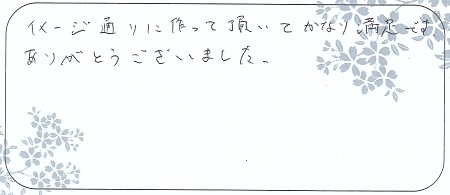 イメージ通りに作って頂いてかなり満足です
ありがとうございました。